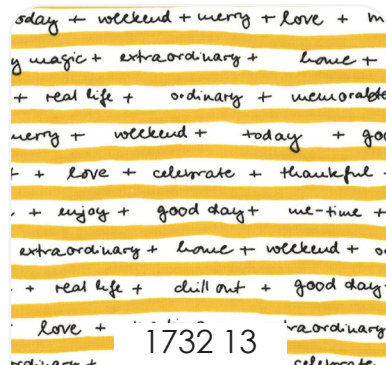 today + weekend + merry + love + m
y magic + extraordinary + home +
+ real life + ordinary + memorable
merry + weekend + today + goo
+ love + celebrate + thankful
+ enjoy + good day + me-time +
extraordinary + home + weekend + o
+ real life + chill out + good day
love + raordinary
ordinary + celebrate
1732 13